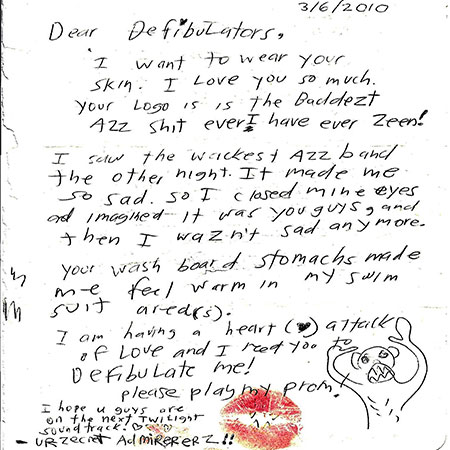 3/6/2010
Dear Defibulators,
I want to wear your
skin. I Love you so much.
your Logo is is the Baddezt
Azz shit ever I have ever Zeen!
I saw the wackest Azz band
the other night. It made me
so sad. so I closed mine eyes
and imagined it was you guys, and
then I wazn't sad anymore.
your wash board stomachs made
me feel warm in my swim
suit area(s).
I am having a heart (♥) attack
of Love and I need you to
Defibulate me!
please play my prom!
I hope u guys are
on the next Twilight
soundtrack! ♡♡♡
- UR Zecret Admirererz!!